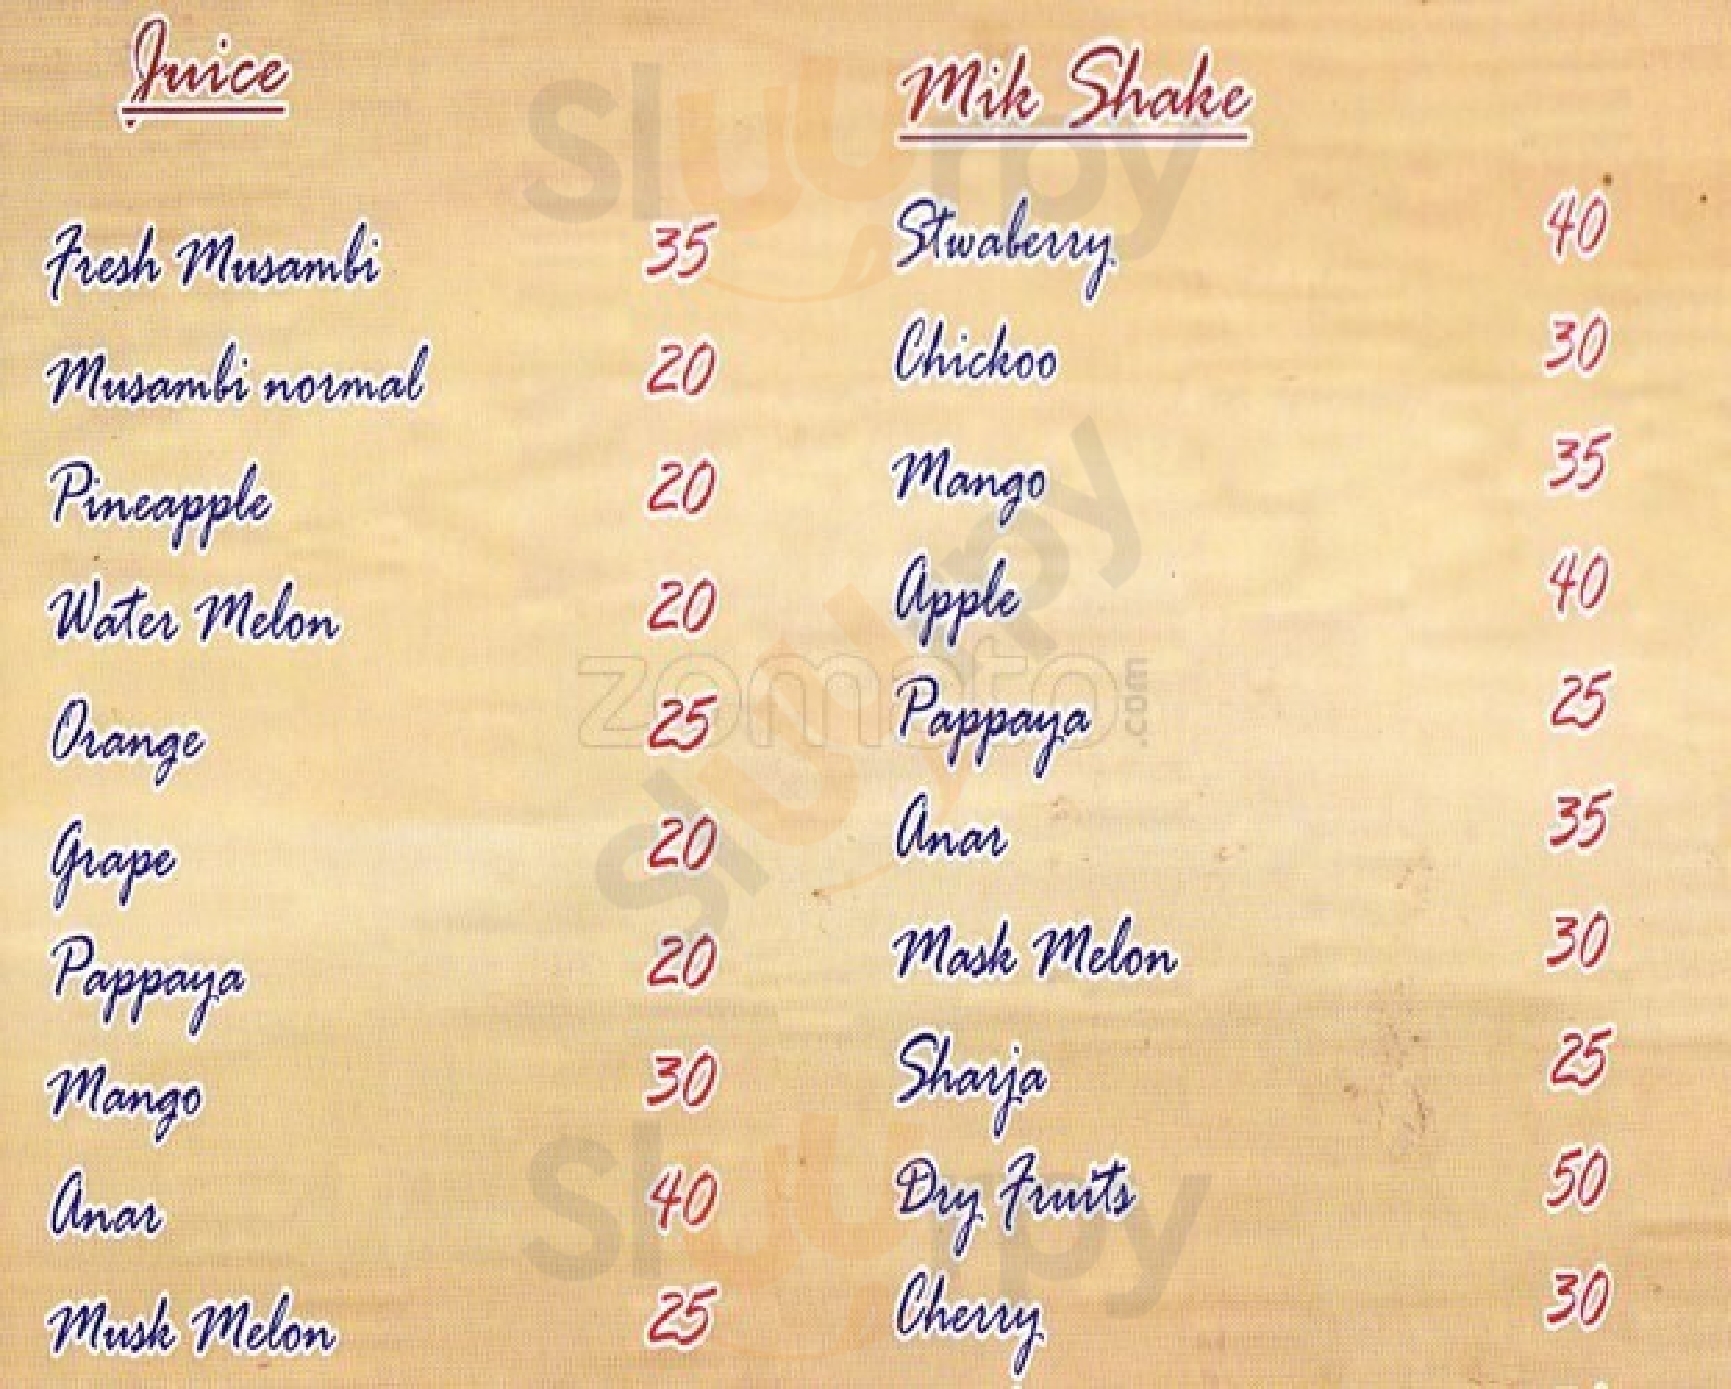 Juice
Fresh Musambi 35
Musambi normal 20
Pineapple 20
Water Melon 20
Orange 25
Grape 20
Pappaya 20
Mango 30
Anar 40
Musk Melon 25
Mik Shake
Stwaberry 40
Chickoo 30
Mango 35
Apple 40
Pappaya 25
Anar 35
Mask Melon 30
Sharja 25
Dry Fruits 50
Cherry 30
Sluurpy
Sluurpy
zomato.com
Sluurpy